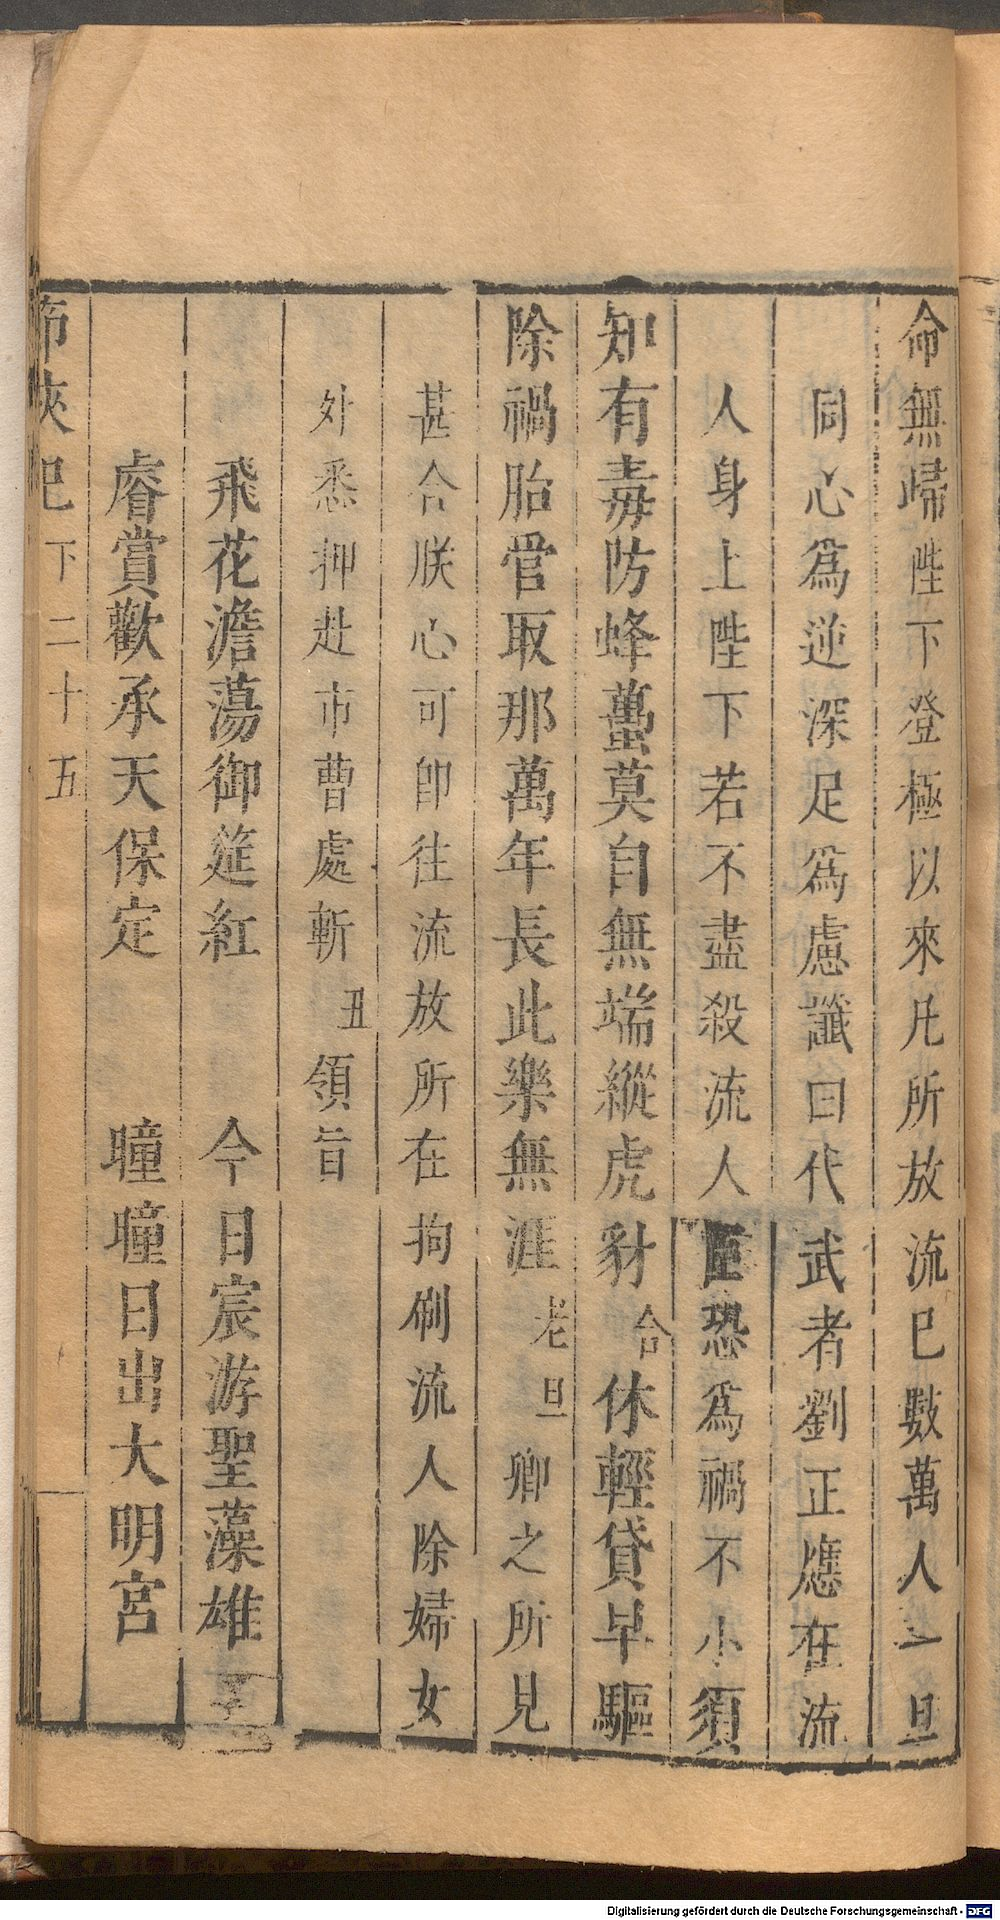 命無歸陛下登極以來凡所放流已數萬人一旦
同心爲逆深足爲慮讖曰代武者劉正應在流
人身上陛下若不盡殺流人臣恐爲禍不小須
知有毒防蜂蠆莫自無端縱虎豺合休輕貸早驅
除禍胎管取那萬年長此樂無涯老旦卿之所見
甚合朕心可卽往流放所在拘刷流人除婦女
外悉押赴市曹處斬丑領旨
飛花澹蕩御筵紅 今日宸游聖藻雄
睿賞歡承天保定 曈曈日出大明宮
俠 下二十五
Digitalisierung gefördert durch die Deutsche Forschungsgemeinschaft - DFG